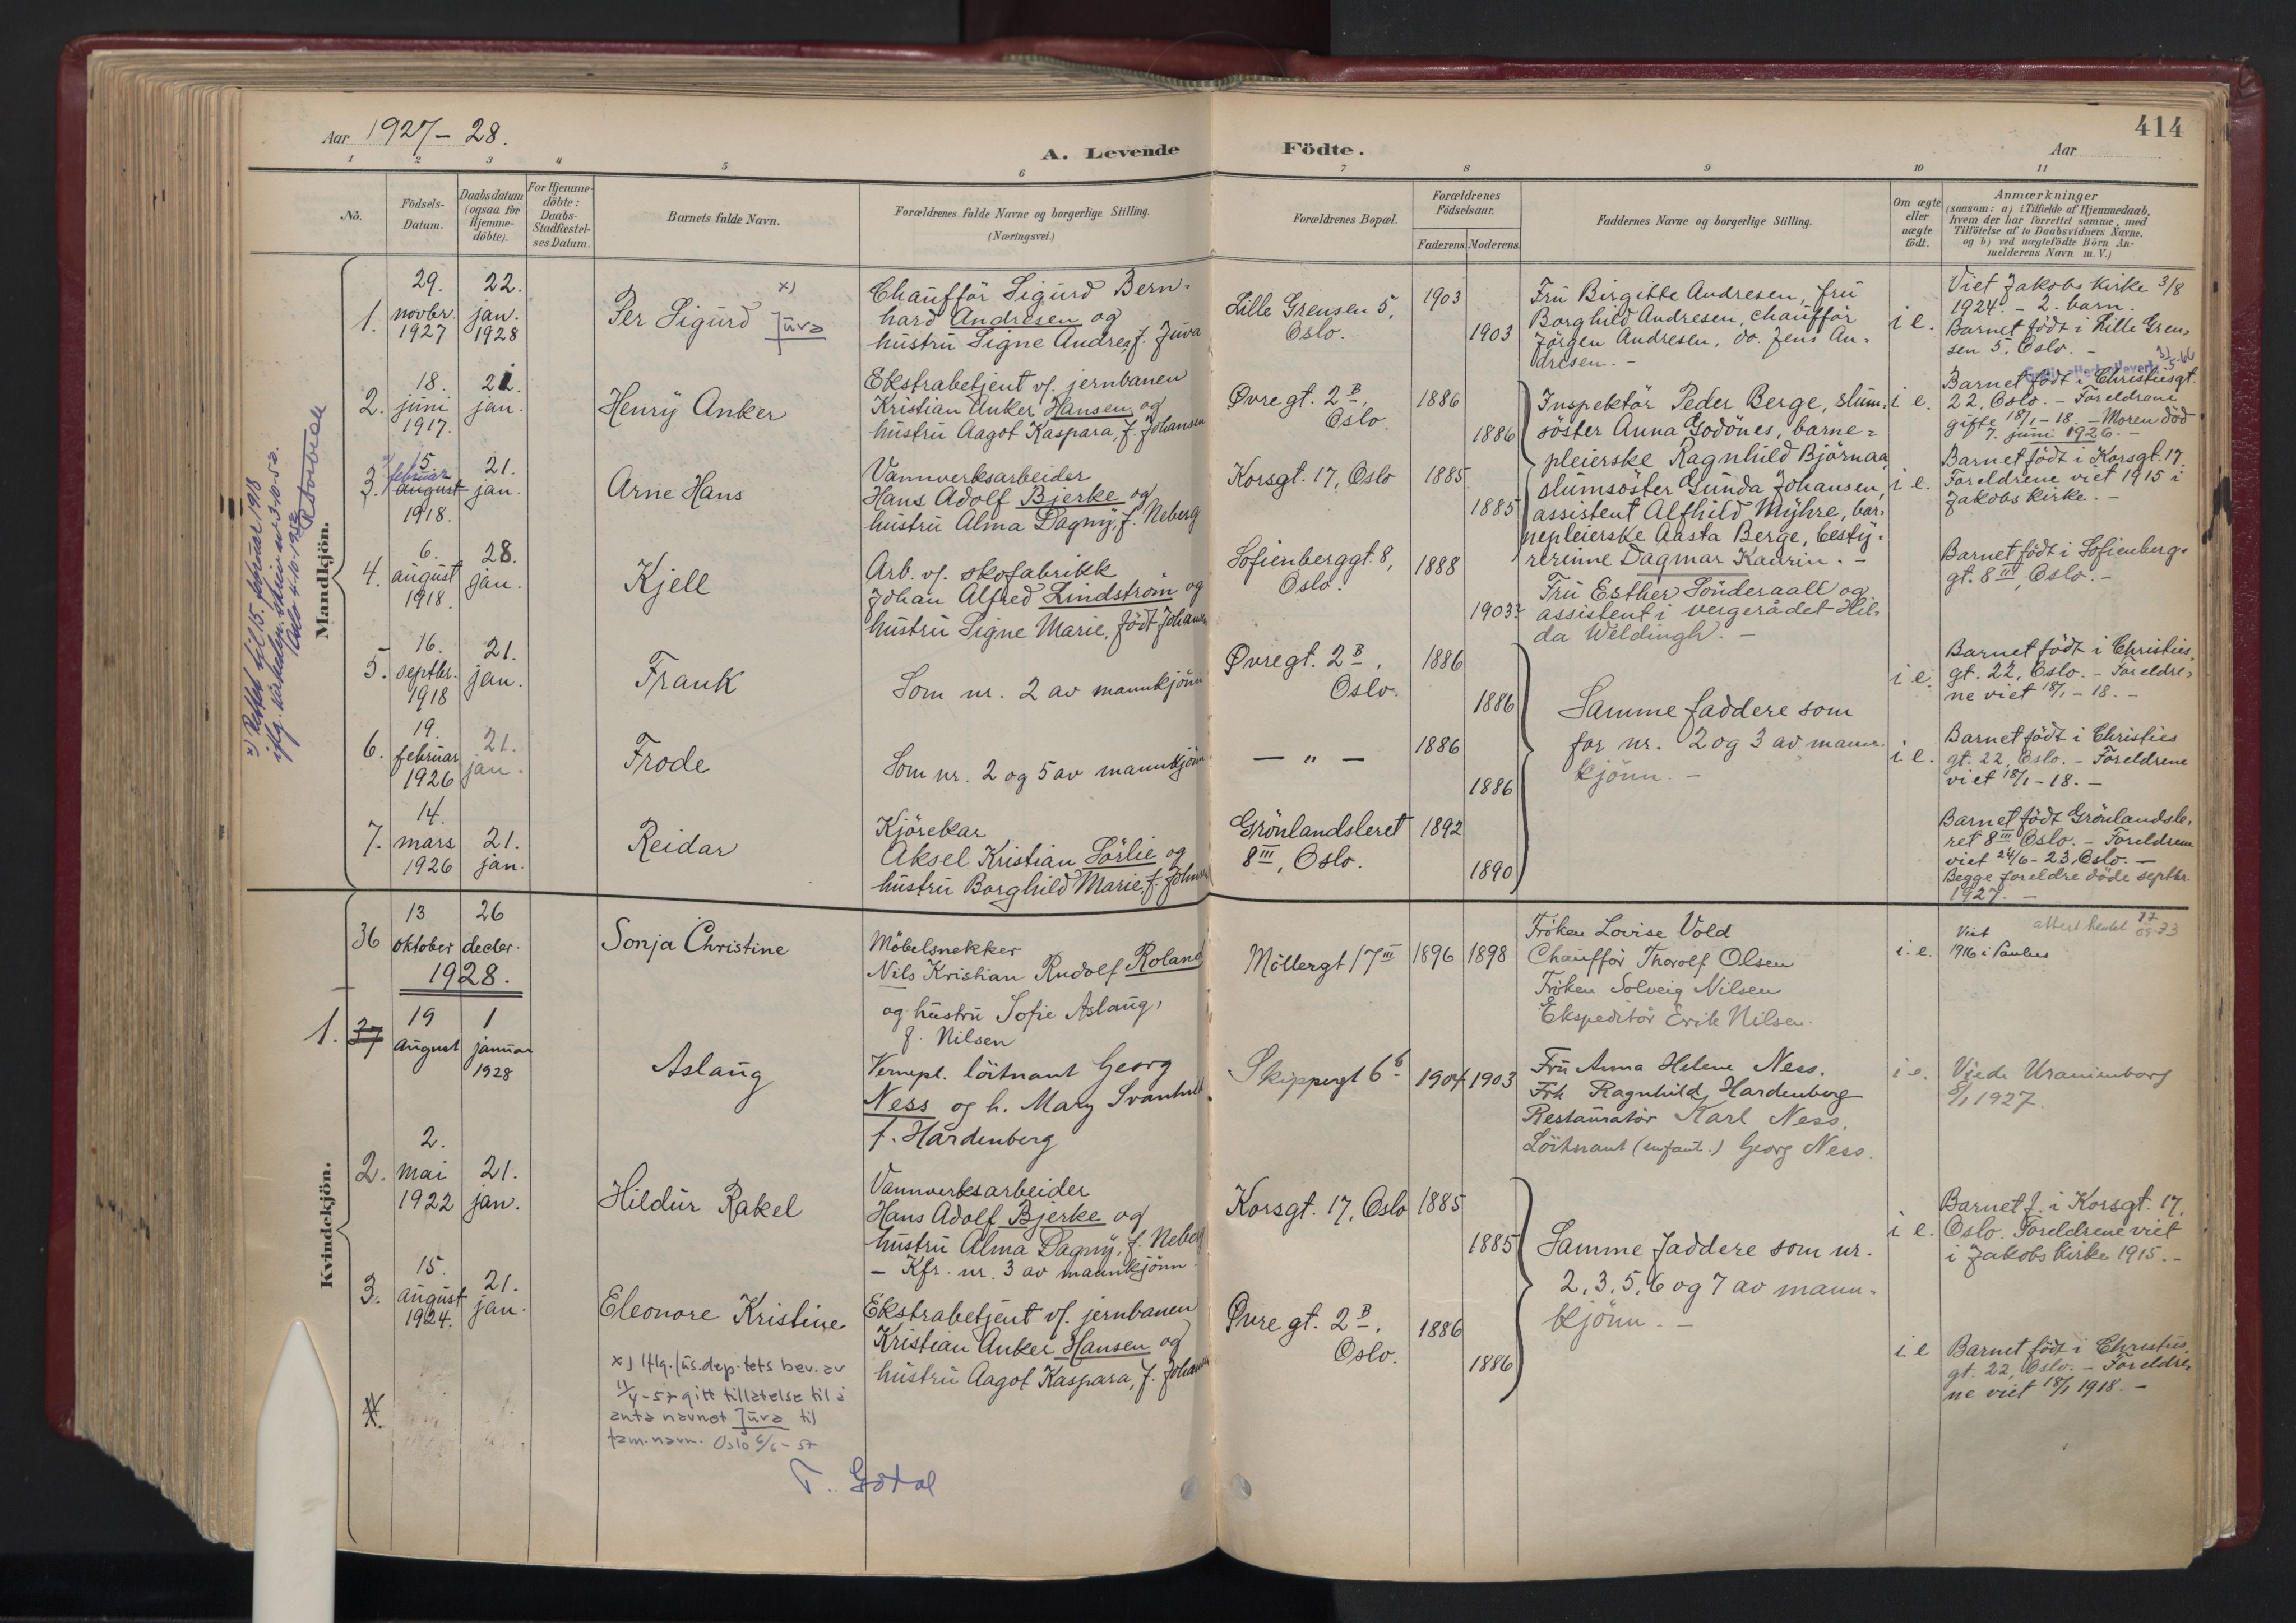 Aar 1927-28.
A. Levende
Födte.
414
Aar
1 2 3 4 5 6 7 8 9 10 11
No.
Födsels-
Datum.
Daabsdatum
(ogsaa for
Hjemme-
döbte).
For Hjemme-
döbte:
Daabs-
Stadfæstel-
ses Datum.
Barnets fulde Navn.
Forældrenes fulde Navne og borgerlige Stilling.
(Næringsvei.)
Forældrenes Bopæl.
Forældrenes
Födselsaar.
Faderens. Moderens.
Faddernes Navne og borgerlige Stilling.
Om ægte
eller
uægte
födt.
Anmærkninger
(saasom: a) i Tilfælde af Hjemmedaab,
hvem der har forrettet samme, med
Tilföielse af to Daabsvidners Navne.
og b) ved uægtefödte Börn An-
melderens Navn m. V.)
Mandkjön.
x) Rettet til 15. februar 1918
iflg. 3-10-52.
Oslo 4-10-1952
1.
29.
novbr.
1927
22.
jan.
1928
Per Sigurd x)
Juva
Chaufför Sigurd Bern-
hard Andresen og
hustru Signe Andrea, f. Juva
Lille Grensen 5,
Oslo.
1903
1903
Fru Birgitte Andresen, fru
Borghild Andresen, chaufför
Jörgen Andresen, do. Jens An-
dresen. -
i e.
Viet Jakobs kirke 3/8
1924. - 2. barn.
Barnet födt i Lille Gren-
sen 5, Oslo. -
2.
18.
juni
1917.
21.
jan.
Henry Anker
Ekstrabetjent v/. jernbanen
Kristian Anker Hansen og
hustru Aagot Kaspara, f. Johansen
Øvregt. 2 B,
Oslo.
1886
1886
Inspektör Peder Berge, slum-
söster Anna Godönes, barne-
pleierske Ragnhild Björnaa,
i e.
Barnet födt i Christiesgt.
22, Oslo. - Foreldrene
gifte 18/1-18. - Moren död
7. juni 1926. -
3.
15
februar
august
1918.
21.
jan.
Arne Hans
Vannverksarbeider
Hans Adolf Bjerke og
hustru Alma Dagny, f. Neberg
Korsgt. 17, Oslo
1885
1885
slumsöster Gunda Johansen,
assistent Alfhild Myhre, bar-
nepleierske Aasta Berge, besty-
rerinne Dagmar Kaurin. -
i e.
Barnet födt i Korsgt. 17.
Foreldrene viet 1915 i
Jakobs kirke. -
4.
6.
august
1918.
28.
jan.
Kjell
Arb. v/. skofabrikk
Johan Alfred Lindström og
hustru Signe Marie, födt Johansen
Sofienberggt. 8,
Oslo.
1888
1903?
Fru Esther Sönderaall og
assistent i vergerådet Hil-
da Weldingh. -
Barnet födt i Sofienberg-
gt. 8 III, Oslo. -
5.
16.
septbr.
1918
21.
jan.
Frank
Som nr. 2 av mannkjönn
Øvregt. 2 B,
Oslo.
1886
1886
Samme faddere som
for nr. 2 og 3 av mann-
kjönn. -
i e.
Barnet födt i Christies-
gt. 22, Oslo. - Foreldre-
ne viet 18/1-18. -
6.
19.
februar
1926
21.
jan.
Frode
Som nr. 2 og 5 av mannkjönn
— " —
1886
1886
i e.
Barnet födt i Christies
gt. 22, Oslo. - Foreldrene
viet 18/1-18. -
7.
14.
mars
1926
21.
jan.
Reidar
Kjörekar
Aksel Kristian Sörlie og
hustru Borghild Marie, f. Johnsen
Grönlandsleret
8 III, Oslo.
1892
1890
Barnet födt Grönlandsle-
ret 8 III Oslo. - Foreldrene
viet 24/6-23, Oslo. -
Begge foreldre döde septbr.
1927. -
Kvindekjön.
36
13
oktober
26
decbr.
1928.
Sonja Christine
Möbelsnekker
Nils Kristian Rudolf Roland
og hustru Sofie Aslaug,
f. Nilsen
Möllergt 17 III
1896 1898
Fröken Lovise Vold
Chaufför Thorolf Olsen
Fröken Solveig Nilsen
Ekspeditör Erik Nilsen.
i. e.
Viet
1916 i Paulus
attest hentet
1. 37
19
August
1
januar
1928
Aslaug
Vernepl. löitnant Georg
Ness og h. Mary Svanhild
f. Hardenberg
Skippergt 6 b
1904 1903
Fru Anna Helene Ness.
Frk Ragnhild Hardenberg
Restauratör Karl Ness.
Löitnant (infant.) Georg Ness.
i e.
Viede Uranienborg
8/1 1927.
2.
2.
mai
1922
21.
jan.
Hildur Rakel
Vannverksarbeider
Hans Adolf Bjerke og
hustru Alma Dagny, f. Neberg
- Kfr. nr. 3 av mannkjönn.
Korsgt. 17, Oslo
1885
1885
Samme faddere som nr.
2, 3, 5, 6 og 7 av mann-
kjönn. -
i e.
Barnet f. i Korsgt. 17,
Oslo. Foreldrene viet
i Jakobs kirke 1915. -
3.
15.
august
1924.
21.
jan.
Eleonore Kristine
Ekstrabetjent v/. jernbanen
Kristian Anker Hansen og
hustru Aagot Kaspara, f. Johansen
Øvregt. 2 B,
Oslo.
1886
1886
i e
Barnet födt i Christies-
gt. 22, Oslo. - Foreldre-
ne viet 18/1 1918. -
4.
x) Iflg. Jus.dep.tets bev. av
11/4-57 gitt tillatelse til å
anta navnet Juva til
fam.navn. Oslo 6/6-57
T. Götal